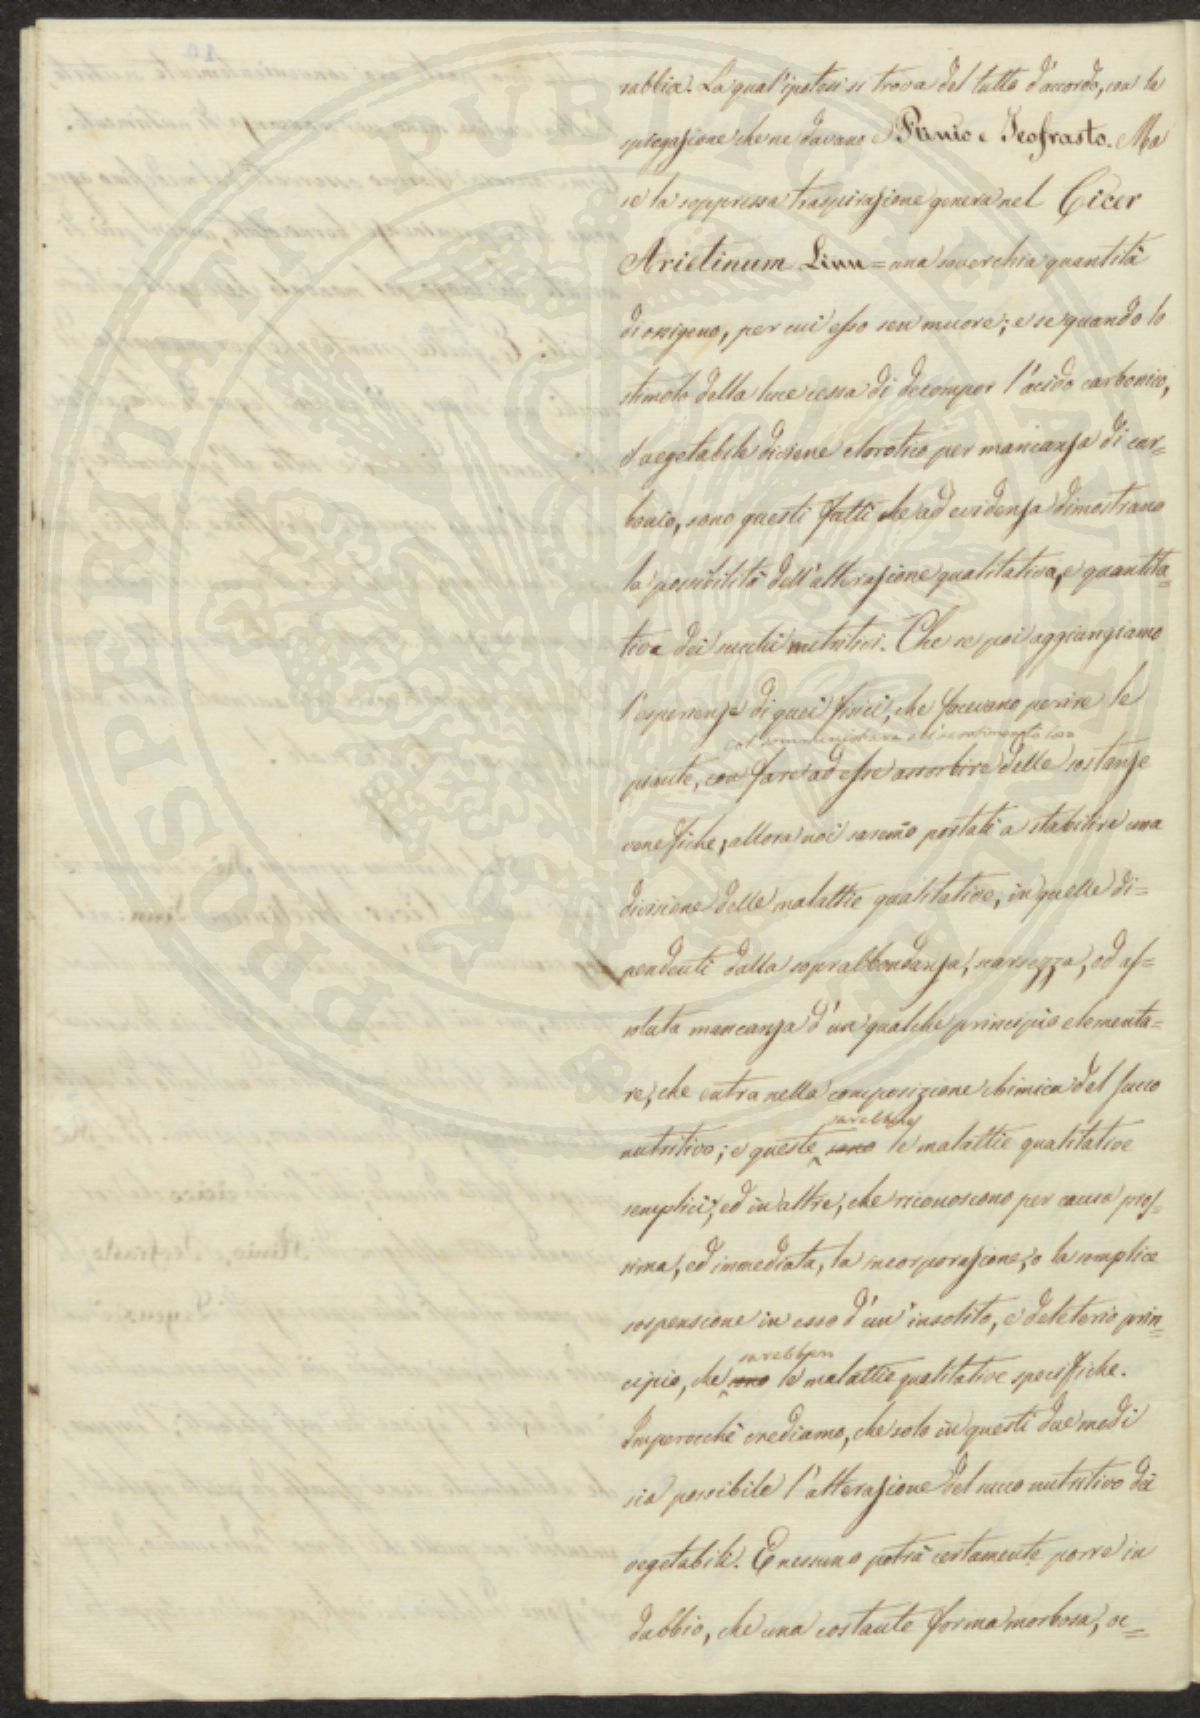 rabbia. La qual'ipotesi si trova del tutto d'accordo, con la
spiegazione che ne davano e Plinio e Teofrasto. Ma
se la soppressa traspirazione genera nel Cicer
Arietinum Linn = una soverchia quantità
di ossigeno, per cui esso sen muore; e se quando lo
stimolo della luce cessa di decompor l'acido carbonico,
il vegetabile diviene clorotico per mancanza di car=
bonio, sono questi fatti che ad evidenza dimostrano
la possibilità dell'alterazione qualitativa, e quantita=
tiva dei succhi nutritivi. Che se poi aggiungiamo
l'esperienze di quei fisici, che facevano perire le
piante, con fare ad esse assorbire delle sostanze
venefiche, allora noi saremo portati a stabilire una
divisione delle malattie qualitative, in quelle di=
pendenti dalla soprabbondanza, scarsezza, od as=
soluta mancanza d'un qualche principio elementa=
re, che entra nella composizione chimica del succo
sarebbero
nutritivo; e queste sono le malattie qualitative
semplici; ed in altre, che riconoscono per causa pros=
sima, ed immediata, la incorporazione, o la semplice
sospensione in esso d'un'insolito, e deleterio prin=
sarebber
cipio, che sono le malattie qualitative specifiche.
Imperocchè crediamo, che solo in questi due modi
sia possibile l'alterazione del succo nutritivo dei
vegetabili. E nessuno potrà certamente porre in
dubbio, che una costante forma morbosa, ve=